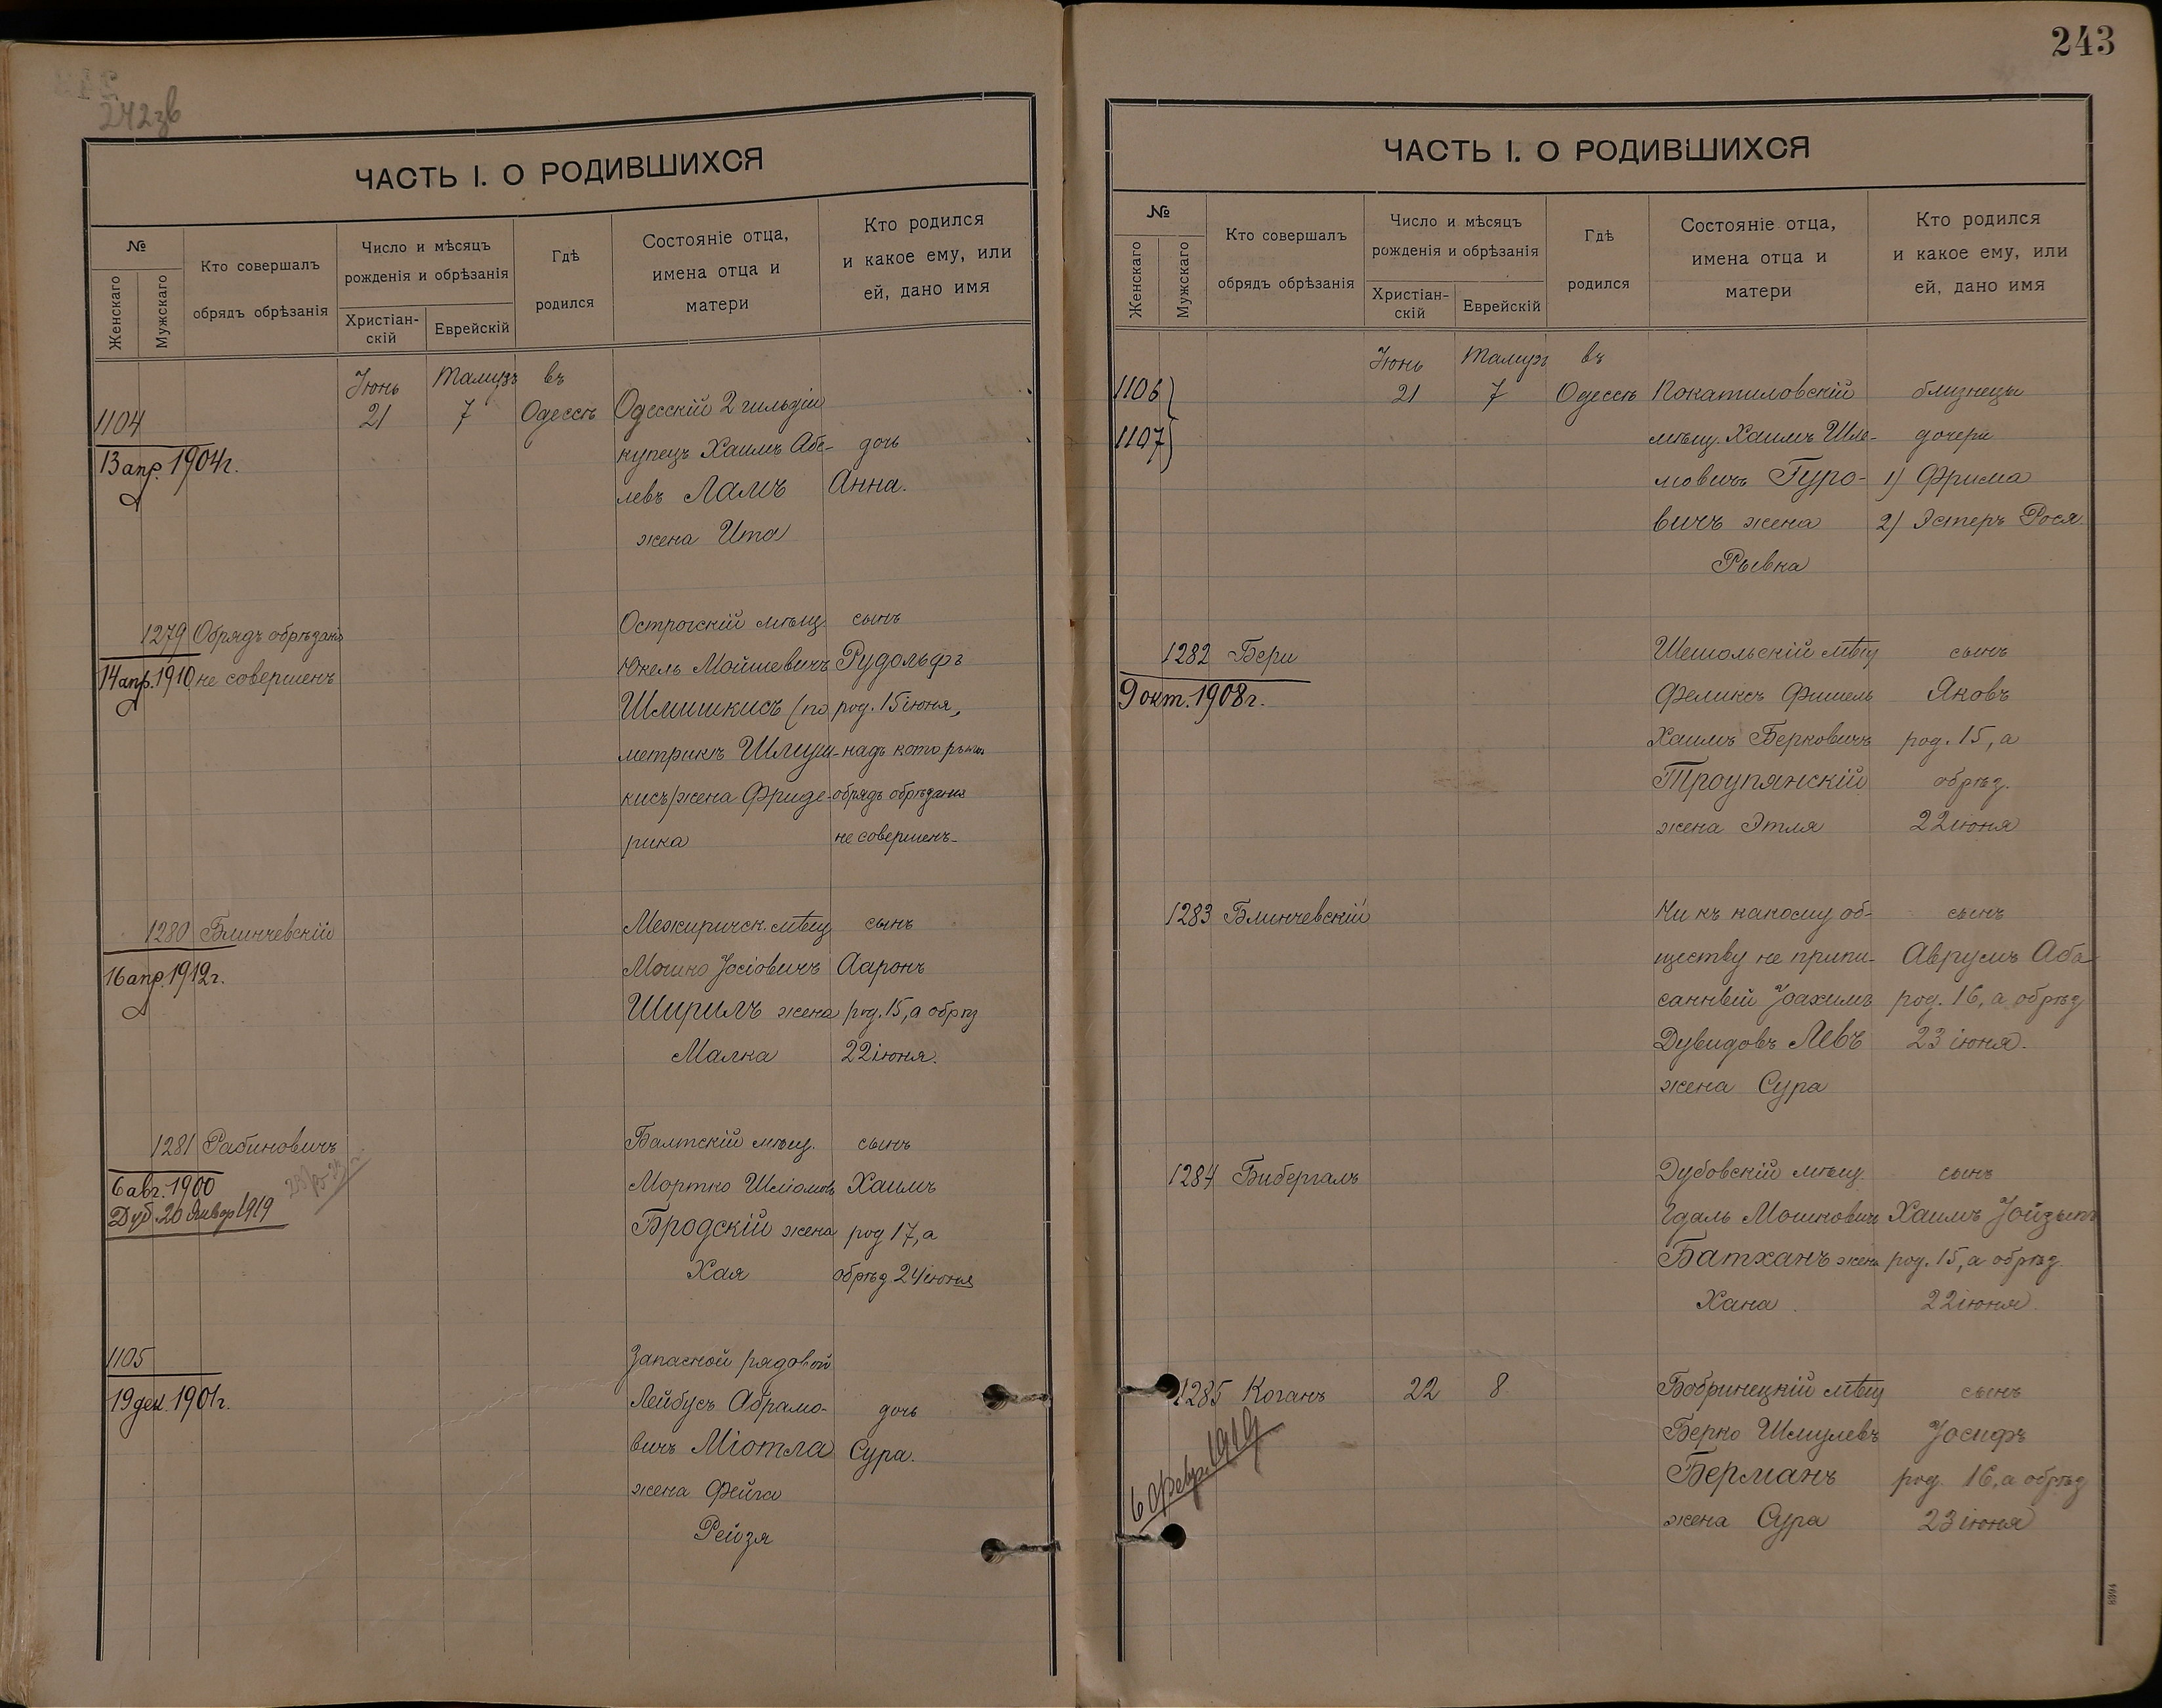 242зв
ЧАСТЬ I. О РОДИВШИХСЯ
№
Женскаго
Мужскаго
Кто совершалъ
обрядъ обрѣзанія
Число и мѣсяцъ
рожденія и обрѣзанія
Христіан-
скій
Еврейскій
Гдѣ
родился
Состояніе отца,
имена отца и
матери
Кто родился
и какое ему, или
ей, дано имя
Іюнь Тамузъ въ
1104 21 7 Одессѣ Одесскій 2 гильдіи
купецъ Хаимъ Абе- дочь
13 апр. 1904г.
левъ Ламъ Анна.
жена Ита
1279 Обрядъ обрѣзанія Острогскій мѣщ. сынъ
14 апр. 1910 не совершенъ Юкель Мойшевичъ Рудольфъ
Шмишкисъ (по род. 15 іюня,
метрикѣ Шмуш- надъ которымъ
кисъ) жена Фриде- обрядъ обрѣзанія
рика не совершенъ-
1280 Блинчевскій Межиричск. мѣщ сынъ
16 апр. 1912г. Мошко Іосіовичъ Ааронъ
Ширилъ жена род. 15, а обрѣз
Малка 22 іюня.
1281 Рабиновичъ Балтскій мѣщ. сынъ
6 авг. 1900 Мортко Шліомовъ Хаимъ
Дуб. 20 январ 1919
Бродскій жена род 17, а
Хая обрѣз 24 іюня
1105 Запасной рядовой
19 дек. 1901г. Лейбусъ Абрамо- дочь
вичъ Міотла Сура.
жена Фейга
Рейзя
243
ЧАСТЬ I. О РОДИВШИХСЯ
№
Женскаго
Мужскаго
Кто совершалъ
обрядъ обрѣзанія
Число и мѣсяцъ
рожденія и обрѣзанія
Христіан-
скій
Еврейскій
Гдѣ
родился
Состояніе отца,
имена отца и
матери
Кто родился
и какое ему, или
ей, дано имя
Іюнь Тамузъ въ
1106) 21 7 Одессѣ Покатиловскій близнецы
1107) мѣщ. Хаимъ Шле- дочери
мовичъ Гуро- 1) Фрима
вичъ жена 2) Эстеръ Рося
Рывка
1282 Бери мѣщ сынъ
9 окт. 1908г. Феликсъ Фишель Яковъ
Хаимъ Берковичъ род. 15, а
Троупянскій обрѣз.
жена Этля 22 іюня
1283 Блинчевскій Ни къ какому об- сынъ
ществу не припи- Аврумъ Аба
санный Іоахимъ род. 16, а обрѣз
Дувидовъ Левъ 23 іюня.
жена Сура
1284 Бибергалъ Дубовскій мѣщ. сынъ
Гдаль Мошковичъ Хаимъ Іойзыпъ
Батханъ жена род. 15, а обрѣз
Хана 22 іюня.
1285 Коганъ 22 8 Бобринецкій мѣщ сынъ
6 февр. 1919
Берко Шмулевъ Іосифъ
Берманъ род. 16, а обрѣз
жена Сура 23 іюня